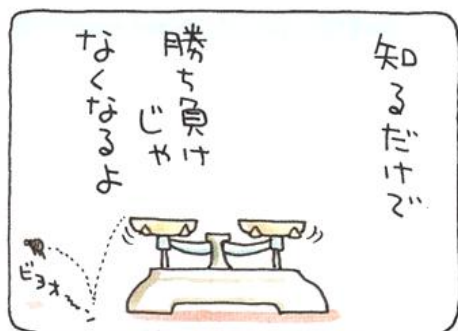 知るだけで
勝ち負け
じゃ
なくなるよ
ビヨォ〜〜ン